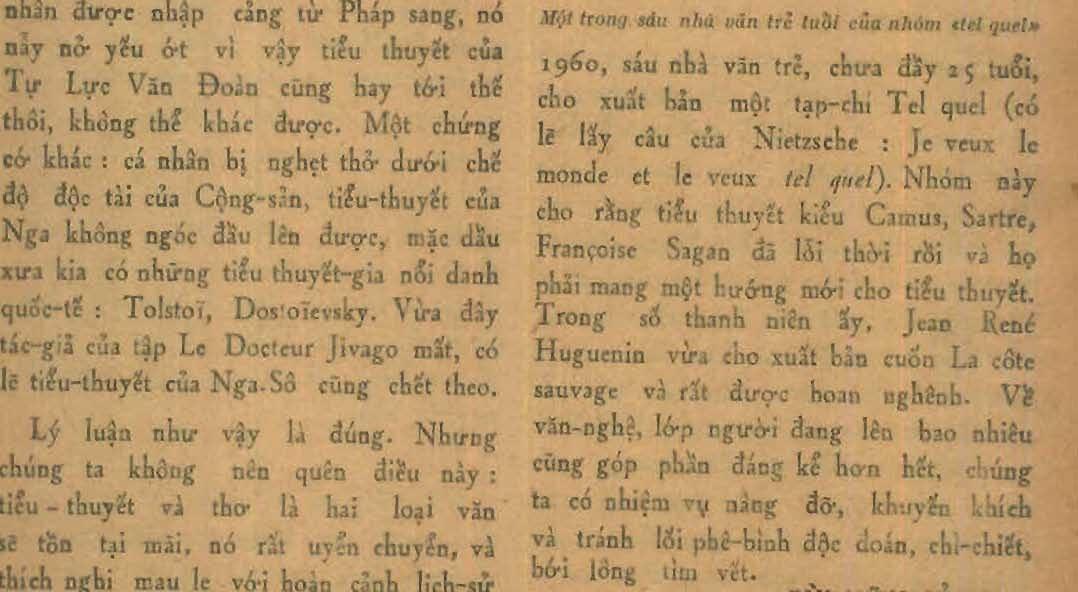 nhân được nhập cảng từ Pháp sang, nó
nảy nở yếu ớt vì vậy tiểu thuyết của
Tự Lực Văn Đoàn cũng hay tới thế
thôi, không thể khác được. Một chứng
cớ khác : cá nhân bị nghẹt thở dưới chế
độ độc tài của Cộng-sản, tiểu-thuyết của
Nga không ngóc đầu lên được, mặc dầu
xưa kia có những tiểu thuyết-gia nổi danh
quốc-tế : Tolstoï, Dostoïevsky. Vừa đây
tác-giả của tập Le Docteur Jivago mất, có
lẽ tiểu-thuyết của Nga-Sô cũng chết theo.
Lý luận như vậy là đúng. Nhưng
chúng ta không nên quên điều này :
tiểu - thuyết và thơ là hai loại văn
sẽ tồn tại mãi, nó rất uyển chuyển, và
thích nghi mau lẹ với hoàn cảnh lịch-sử
Một trong sáu nhà văn trẻ tuổi của nhóm «tel quel»
1960, sáu nhà văn trẻ, chưa đầy 25 tuổi,
cho xuất bản một tạp-chí Tel quel (có
lẽ lấy câu của Nietzsche : Je veux le
monde et le veux tel quel). Nhóm này
cho rằng tiểu thuyết kiểu Camus, Sartre,
Françoise Sagan đã lỗi thời rồi và họ
phải mang một hướng mới cho tiểu thuyết.
Trong số thanh niên ấy, Jean René
Huguenin vừa cho xuất bản cuốn La côte
sauvage và rất được hoan nghênh. Về
văn-nghệ, lớp người đang lên bao nhiêu
cũng góp phần đáng kể hơn hết, chúng
ta có nhiệm vụ nâng đỡ, khuyến khích
và tránh lối phê-bình độc đoán, chì-chiết,
bới lông tìm vết.